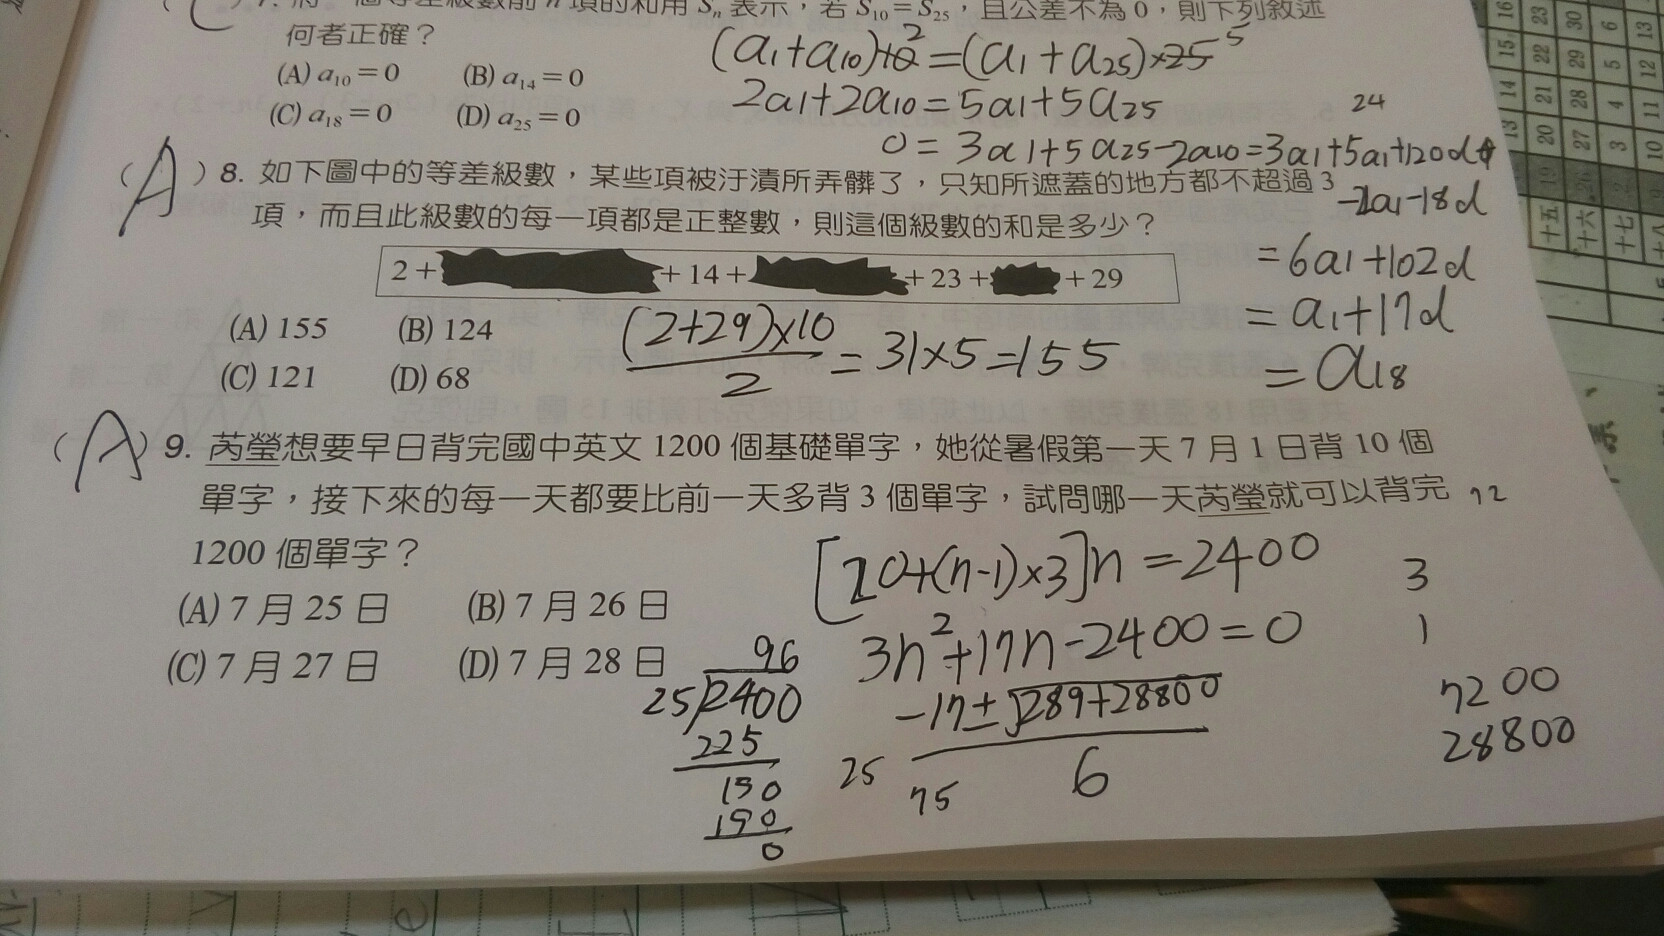 7. 將一個等差級數前 n 項的和用 Sₙ 表示，若 S₁₀＝S₂₅，且公差不為 0，則下列敘述
何者正確？
(A) a₁₀＝0 (B) a₁₄＝0
(C) a₁₈＝0 (D) a₂₅＝0
(a₁+a₁₀)×2=(a₁+a₂₅)×25 5
2a₁+2a₁₀=5a₁+5a₂₅
24
0=3a₁+5a₂₅-2a₁₀=3a₁+5a₁+120d
-2a₁-18d
=6a₁+102d
=a₁+17d
=a₁₈
(A) 8. 如下圖中的等差級數，某些項被汙漬所弄髒了，只知所遮蓋的地方都不超過 3
項，而且此級數的每一項都是正整數，則這個級數的和是多少？
2＋ ＋14＋ ＋23＋ ＋29
(A) 155 (B) 124
(C) 121 (D) 68
(2+29)×10
2
=31×5=155
(A) 9. 芮瑩想要早日背完國中英文 1200 個基礎單字，她從暑假第一天 7 月 1 日背 10 個
單字，接下來的每一天都要比前一天多背 3 個單字，試問哪一天芮瑩就可以背完
1200 個單字？
(A) 7 月 25 日 (B) 7 月 26 日
(C) 7 月 27 日 (D) 7 月 28 日
72
[20+(n-1)×3]n=2400
3
3n²+17n-2400=0
1
-17±√289+28800
6
7200
28800
96
25 2400
225
150
150
0
25
75
十五
十六
十七